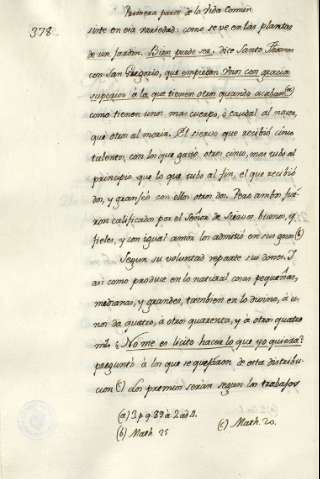 Primera parte de la Vida Comun
378.
siste en esa variedad: como se ve en las plantas
de un Jardin. Bien puede ser, dice Santo Thomas
con San Gregorio, que empiezen Unos con gracia
superior à la que tienen otros quando acaban (a)
como tienen unos mas cuerpo, ò caudal al nacer,
que otros al morir. El siervo que recibiò cinco
talentos, con los que ganò otros cinco, mas tubo al
principio que lo que tubo al fin, el que recibiò
dos, y grangeò con ellos otros dos. Pero ambos fue-
ron calificados por el Señor de Siervos, buenos, y
fieles, y con igual amor los admitiò en sus gozos (b)
Segun su voluntad reparte sus dones. I
asi como produce en lo natural cosas pequeñas,
medianas, y grandes, tambien en lo divino, à u-
nos dà quatro, à otros quarenta, y à otros quatro
mil: No me es licito hacer lo que yo quiera?
preguntò à los que se quejaron de esta distribu-
cion (c) Los premios seràn segun los trabajos
(a) 3 p. q. 89 à 2 ad
(b) Math. 25
(c) Math. 20.